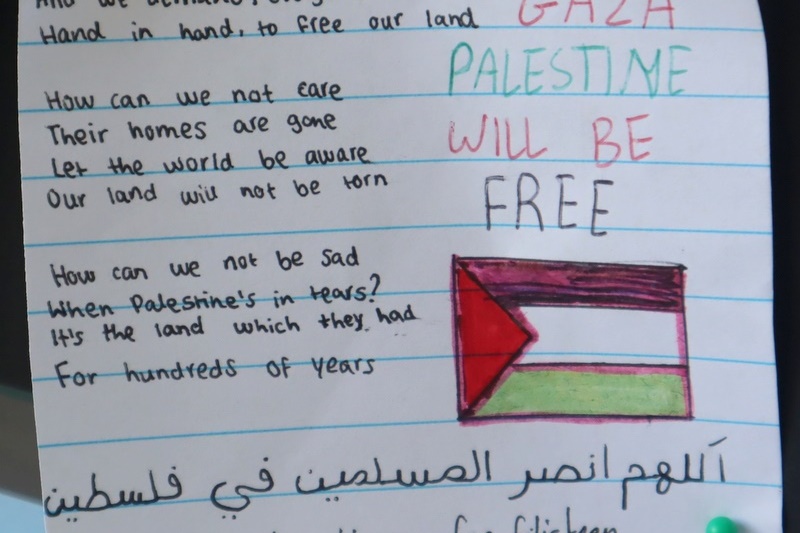 And we demand,
Hand in hand, to free our land
How can we not care
Their homes are gone
Let the world be aware
Our land will not be torn
How can we not be sad
When Palestine's in tears?
It's the land which they had
For hundreds of years
GAZA
PALESTINE
WILL BE
FREE
اللهم انصر المسلمين في فلسطين